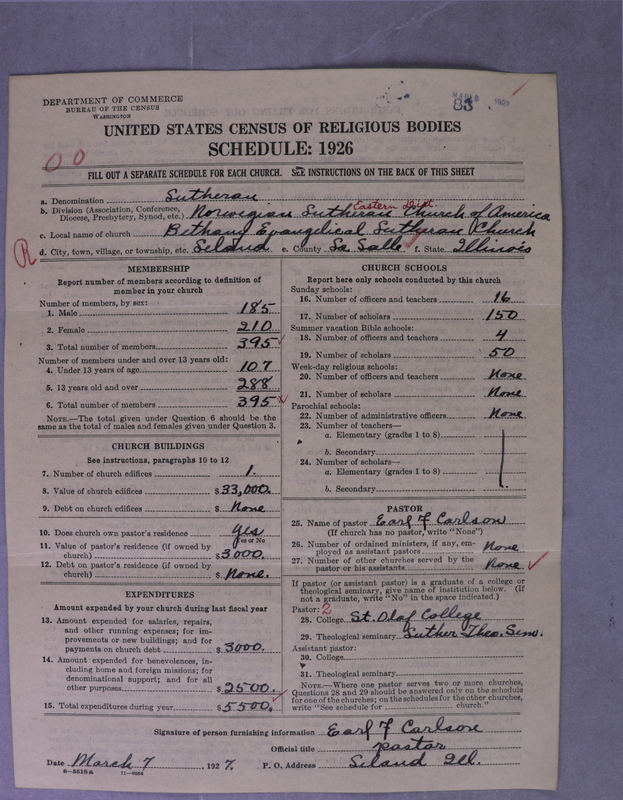 DEPARTMENT OF COMMERCE
BUREAU OF THE CENSUS
WASHINGTON
83
UNITED STATES CENSUS OF RELIGIOUS BODIES
SCHEDULE: 1926
00
FILL OUT A SEPARATE SCHEDULE FOR EACH CHURCH. SEE INSTRUCTIONS ON THE BACK OF THIS SHEET
a. Denomination Lutheran
Eastern Dist.
b. Division (Association, Conference, Diocese, Presbytery, Synod, etc.) Norwegian Lutheran Church of America
c. Local name of church Bethany Evangelical Lutheran Church
R d. City, town, village, or township, etc. Leland e. County La Salle f. State Illinois
MEMBERSHIP
Report number of members according to definition of
member in your church
Number of members, by sex:
1. Male 185
2. Female 210
3. Total number of members 395
Number of members under and over 13 years old:
4. Under 13 years of age 107
5. 13 years old and over 288
6. Total number of members 395
NOTE.—The total given under Question 6 should be the
same as the total of males and females given under Question 3.
CHURCH BUILDINGS
See instructions, paragraphs 10 to 12
7. Number of church edifices 1.
8. Value of church edifices $33,000.
9. Debt on church edifices $ None
10. Does church own pastor's residence Yes
Yes or No
11. Value of pastor's residence (if owned by
church) $3,000.
12. Debt on pastor's residence (if owned by
church) $ None.
EXPENDITURES
Amount expended by your church during last fiscal year
13. Amount expended for salaries, repairs,
and other running expenses; for im-
provements or new buildings; and for
payments on church debt $ 3000.
14. Amount expended for benevolences, in-
cluding home and foreign missions; for
denominational support; and for all
other purposes $ 2500.
15. Total expenditures during year $ 5500.
CHURCH SCHOOLS
Report here only schools conducted by this church
Sunday schools:
16. Number of officers and teachers 16
17. Number of scholars 150
Summer vacation Bible schools:
18. Number of officers and teachers 4
19. Number of scholars 50
Week-day religious schools:
20. Number of officers and teachers None
21. Number of scholars None
Parochial schools:
22. Number of administrative officers None
23. Number of teachers—
a. Elementary (grades 1 to 8)
b. Secondary
24. Number of scholars—
a. Elementary (grades 1 to 8)
b. Secondary
PASTOR
25. Name of pastor Earl F Carlson
(If church has no pastor, write "None")
26. Number of ordained ministers, if any, em-
ployed as assistant pastors None
27. Number of other churches served by the
pastor or his assistants None
If pastor (or assistant pastor) is a graduate of a college or
theological seminary, give name of institution below. (If
not a graduate, write "No" in the space indicated.)
Pastor: 2
28. College St. Olaf College
29. Theological seminary Luther Theo. Sem.
Assistant pastor:
30. College
31. Theological seminary
NOTE.—Where one pastor serves two or more churches,
Questions 28 and 29 should be answered only on the schedule
for one of the churches; on the schedules for the other churches,
write "See schedule for church."
Signature of person furnishing information Earl F Carlson
Official title Pastor
Date March 7, 1927. P. O. Address Leland Ill.
8-5518a 11-9064